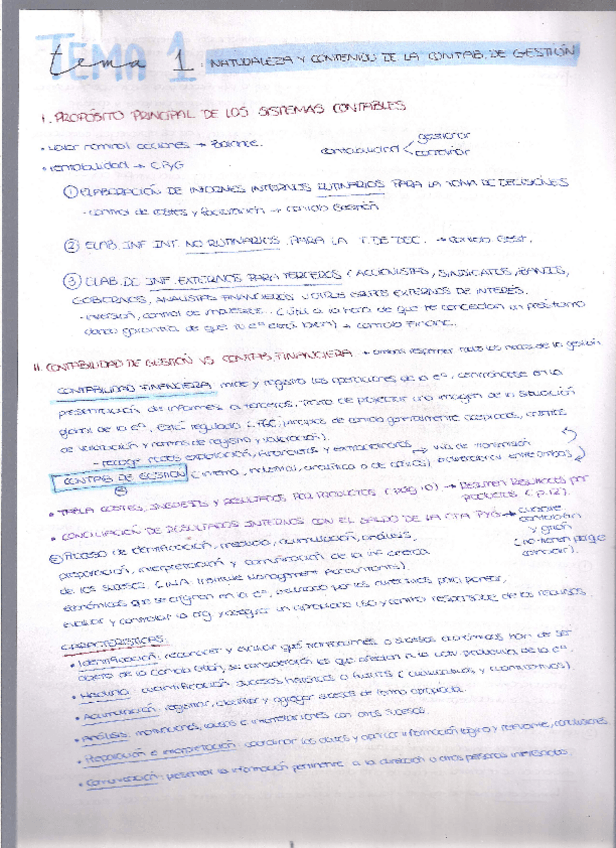 tema 1. NATURALEZA Y CONTENIDO DE LA CONTAB. DE GESTIÓN
I. PROPÓSITO PRINCIPAL DE LOS SISTEMAS CONTABLES
• valor nominal acciones → Balance.
contabilidad < gestionar
controlar
• rentabilidad → C. PyG
① ELABORACIÓN DE INFORMES INTERNOS RUTINARIOS PARA LA TOMA DE DECISIONES
- control de costes y facturación → contab. Gestión
② ELAB. INF. INT. NO RUTINARIOS PARA LA T. DE DEC. → contab. Gest.
③ ELAB. DE INF. EXTERNOS PARA TERCEROS (ACCIONISTAS, SINDICATOS, BANCOS,
GOBIERNOS, ANALISTAS FINANCIEROS U OTROS GRUPOS EXTERNOS DE INTERÉS.
- inversión, control de (útil a la hora de que te concedan un préstamo
garantía de que tu eª está bien) → contab. Financ.
II. CONTABILIDAD DE GESTIÓN VS CONTAB. FINANCIERA → todos los de la gestión
CONTABILIDAD FINANCIERA: mide y registra las operaciones de la eª, centrándose en la
presentación de informes a terceros, trata de proyectar una imagen de la situación
global de la eª, está regulada (PGC, principios de contab. generalmente aceptados, criterios
de valoración y normas de registro y valoración).
- recoge rdos explotación, financieros y extraordinarios → vías de transmisión
CONTAB. DE GESTIÓN (interna, industrial, analítica o de costes) entre ambas
• TABLA COSTES, INGRESOS Y RESULTADOS POR PRODUCTOS (pág 10) → Resumen Resultados por
productos (p.12).
• CONCILIACIÓN DE RESULTADOS INTERNOS CON EL SALDO DE LA CTA PyG →
contabilidad
y gestión
(no tienen pq
coincidir).
Proceso de identificación, medición, acumulación, análisis,
preparación, interpretación y comunicación de la inf. acerca
de los sucesos (I.M.A. Institute Management Accountants).
económicos que se originan en la eª, utilizado por los directivos para planear,
evaluar y controlar la org. y asegurar un apropiado uso y control responsable de los recursos.
CARACTERÍSTICAS:
• Identificación: reconocer y evaluar qué transacciones o sucesos económicos han de ser
objeto de la Contab. Gestión, se consideran los que afectan a la activ. productiva de la eª.
• Medición: cuantificación sucesos históricos o futuros (cualitativos y cuantitativos)
• Acumulación: registrar, clasificar y agregar sucesos de forma apropiada.
• Análisis: motivaciones, causas e interrelaciones con otros sucesos.
• Preparación e interpretación: coordinar los datos y ofrecer información lógica y relevante, conclusiones
• Comunicación: presentar la información pertinente a la dirección u otras personas interesadas.